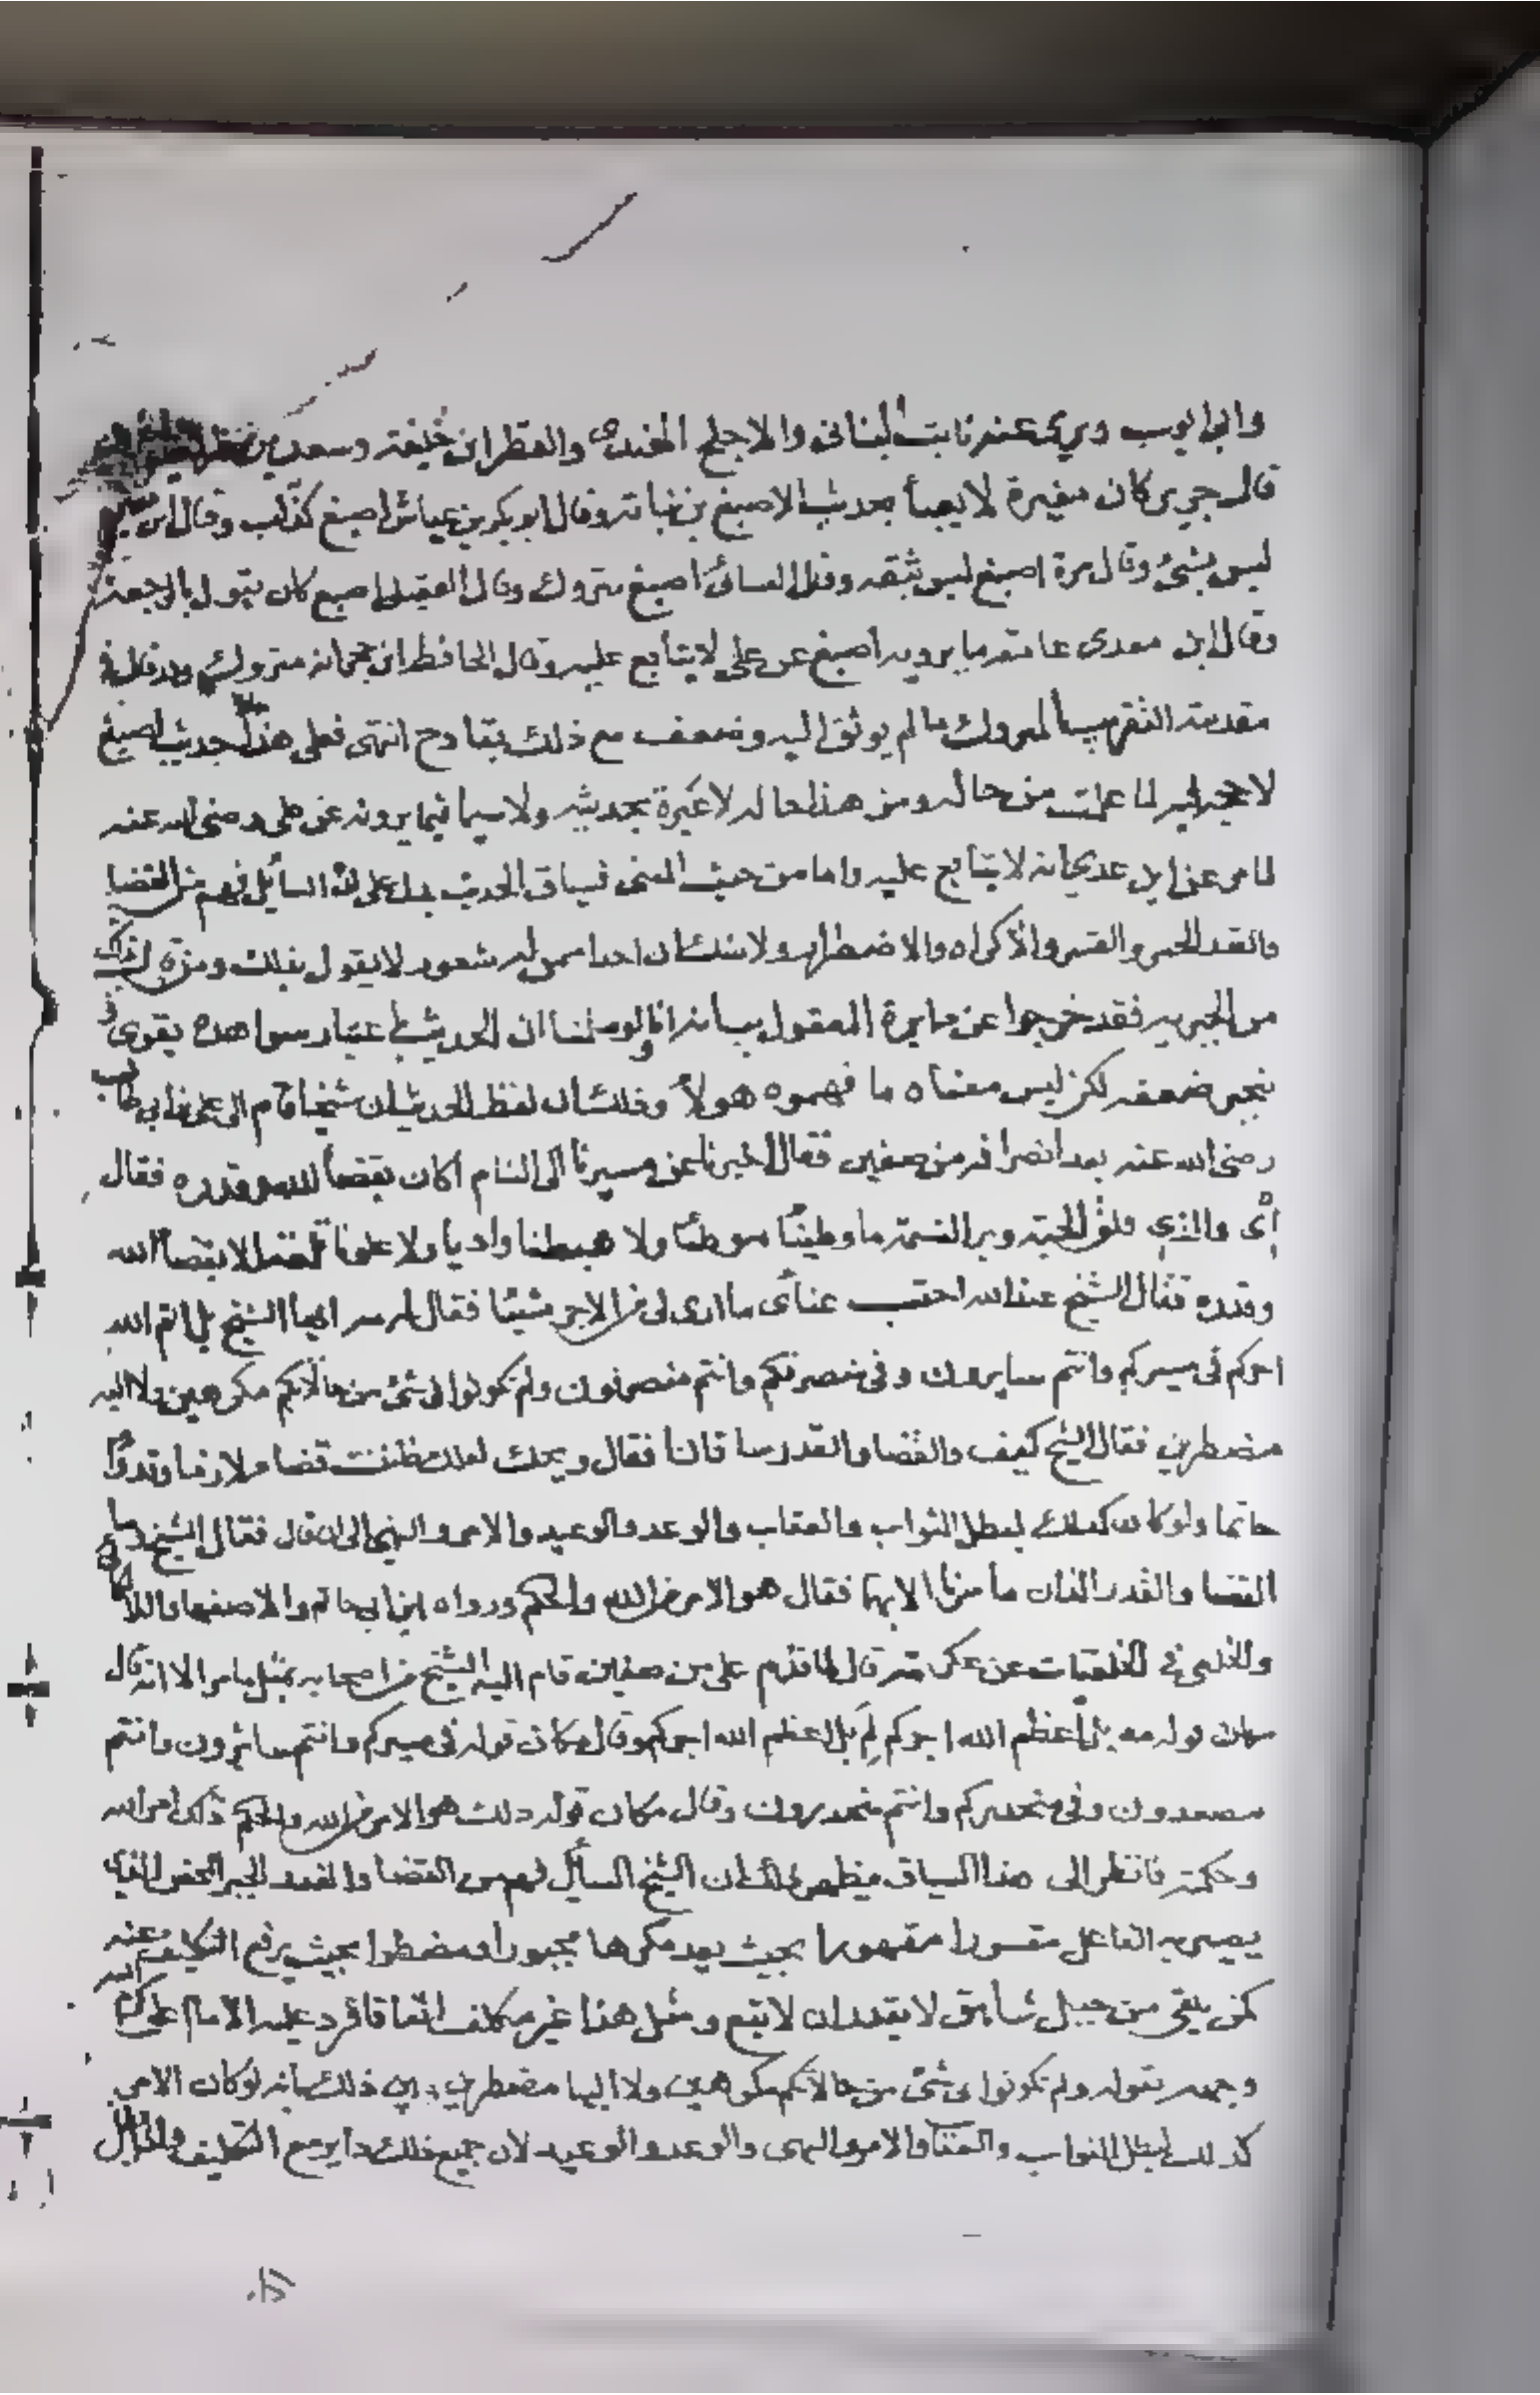 وابى ايوب وروى عنه ثابت البنانى والاجلح الكندى والفطر ابن خليفه وسعد بن
قال جرير كان مغيرة لا يعبأ بحديث الاصبغ بن نباته وقال ابو بكر بن عياش اصبغ كذاب وقال ابن معين
ليس بشئ وقال مرة اصبغ ليس بثقه وقال النسائى اصبغ متروك وقال العقيلى اصبغ كان يقول بالرجعة
وقال ابن عدى عامته ما يرويه اصبغ عن على لا يتابع عليه وقال الحافظ ابن حجر انه متروك وقد قال فى
مقدمته التقريب المتروك ما لم يوثق البه وضعف مع ذلك بقادح انتهى فعلى هذا حديث اصبغ
لا عبرة لما علمت من حاله ومن هذا حاله لا عبرة بحديثه ولا سيما فيما يرونه عن على رضى الله عنه
لما مر عن ابن عدى انه لا يتابع عليه واما من حيث المعنى فسياق الحديث يدل على ان السائل فهم من القضا
والقدر الجبر والقسر والاكراه والاضطرار ولا شك ان احدا ممن له شعور لا يقول بذلك ومن قال بذلك
من الجبريه فقد خرجوا عن دايرة المعقول بيانه انا لو سلمنا ان الحديث باعتبار سواهده يقوى
فيجبر ضعفه لكن ليس معناه ما فهموه هولاء وذلك ان لفظ الحديث ان شيخا قام الى على بن ابى طالب
رضى الله عنه بعد انصرافه من صفين فقال اخبرنا عن مسيرنا الى الشام اكان بقضاء الله وقدره فقال
اى والذى فلق الحبة وبرا النسمة ما وطينا موطئا ولا هبطنا واديا ولا علونا تلعة الا بقضاء الله
وقدره فقال الشيخ عند الله احتسب عنائى ما ارى لى من الاجر شيئا فقال له مه ايها الشيخ بل اعظم الله
اجركم فى مسيركم وانتم سايرون وفى منصرفكم وانتم منصرفون ولم تكونوا فى شئ من حالاتكم مكرهين ولا اليه
مضطرين فقال الشيخ كيف والقضا والقدر ساقانا فقال ويحك لعلك ظننت قضا ملازما وقدرا
حاتما ولو كان كذلك لبطل الثواب والعقاب والوعد والوعيد والامر والنهى الى ان قال فقال الشيخ وما
القضا والقدر اللذان ما سرنا الا بهما فقال هو الامر من الله والحكم ورواه ابن ابى حاتم والاصفهانى واللالكائى
والخلعى فى الخلعيات عن عكرمة قال لما قدم على من صفين قام اليه الشيخ من اصحابه بمثل ما مر الا انه قال
مكان قوله مه بل اعظم الله اجركم لم بل اعظم الله اجركم وقال مكان قوله فى مسيركم وانتم سائرون وانتم
مصعدون وفى منحدركم وانتم منحدرون وقال مكان قوله ذلك هو الامر من الله والحكم ذلك امر الله
وحكمته فانظر الى هذا السياق ميظهر لك ان الشيخ السائل فهم من القضا والقدر الجبر المحض الذى
يصير به الفاعل مقسورا مقهورا بحيث يعد مكرها مجبورا او مضطرا بحيث يرفع التكليف عنه
كمن يلقى من جبل شاهق لا يقدر ان لا يقع ومثل هذا غير مكلف اتفاقا فرد عليه الامام على كرم الله
وجهه بقوله ولم تكونوا فى شئ من حالاتكم مكرهين ولا اليها مضطرين بين ذلك بانه لو كان الامر
كذلك لبطل الثواب والعقاب والامر والنهى والوعد والوعيد لان جميع ذلك داير مع التكليف